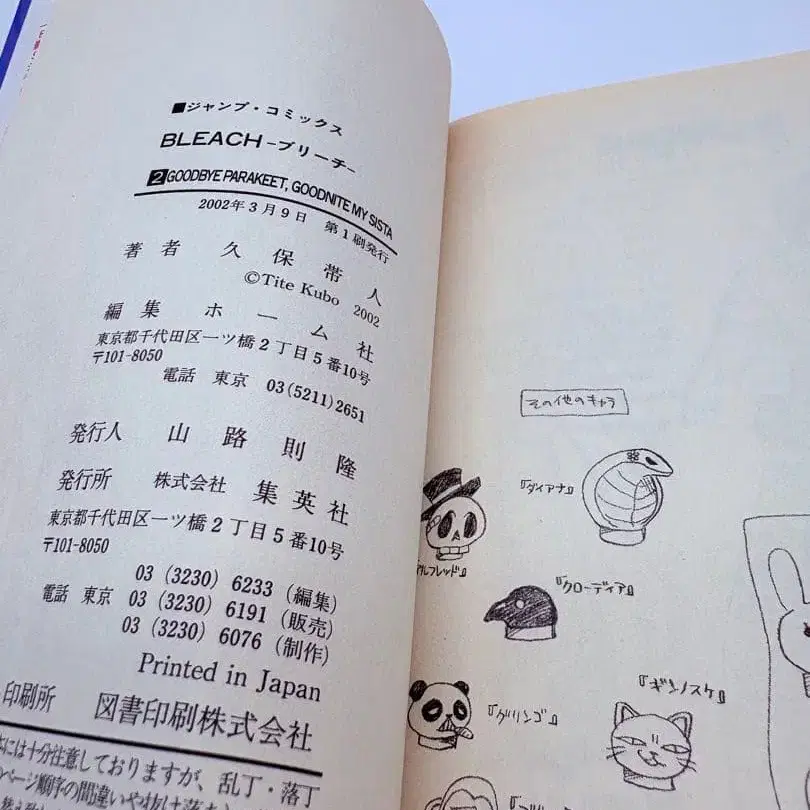 ■ジャンプ・コミックス
BLEACH-ブリーチ-
2 GOODBYE PARAKEET, GOODNITE MY SISTA
2002年3月9日 第1刷発行
著者 久保帯人
©Tite Kubo 2002
編集 ホーム社
東京都千代田区一ツ橋2丁目5番10号
〒101-8050
電話 東京 03(5211)2651
発行人 山路則隆
発行所 株式会社 集英社
東京都千代田区一ツ橋2丁目5番10号
〒101-8050
03(3230)6233(編集)
電話 東京 03(3230)6191(販売)
03(3230)6076(制作)
Printed in Japan
印刷所 図書印刷株式会社
には十分注意しておりますが、乱丁・落丁
ページ順序の間違いや抜け落ち
その他のキャラ
『ダイアナ』
ルフレッド』
『クローディア』
『グリンゴ』
『ギンノスケ』